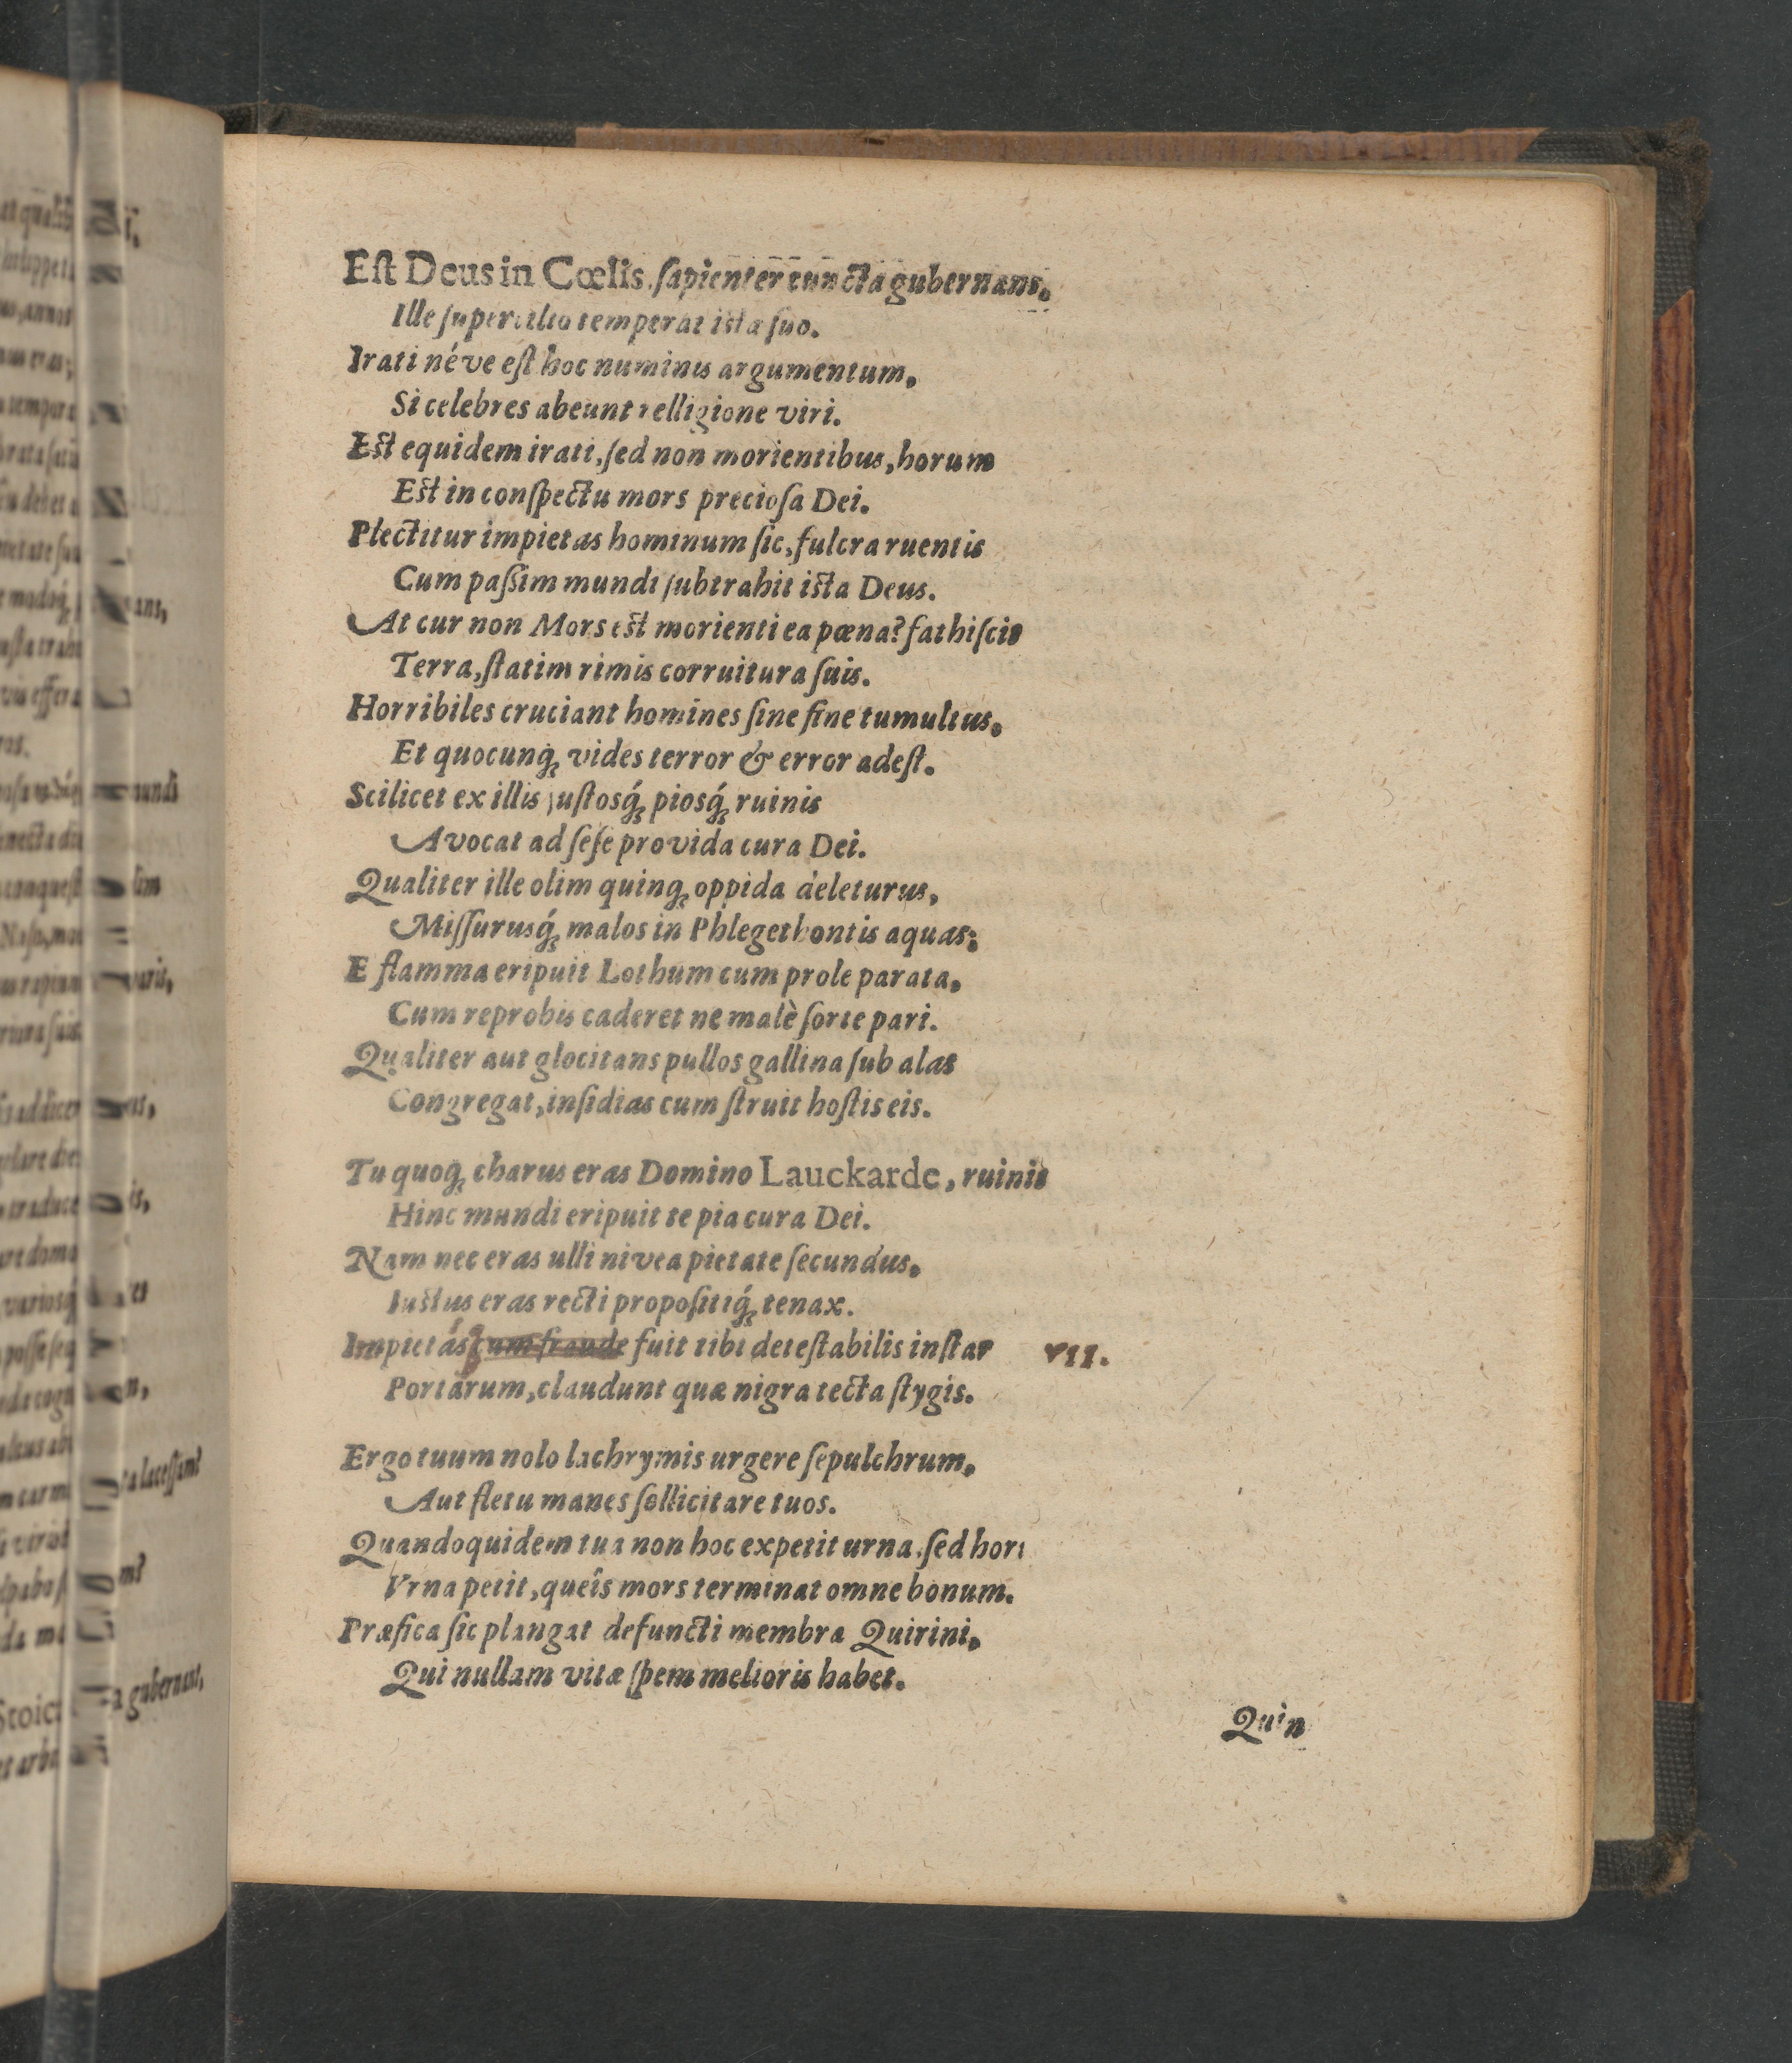 Eſt Deus in Cœlis ſapienter cuncta gubernans,
Ille ſupercilio temperat iſta ſuo.
Irati néve eſt hoc numinis argumentum,
Si celebres abeunt relligione viri.
Eſt equidem irati, ſed non morientibus, horum
Eſt in conſpectu mors precioſa Dei.
Plectitur impietas hominum ſic, fulcra ruentis
Cum paſſim mundi ſubtrahit iſta Deus.
At cur non Mors eſt morienti ea pœna? fathiſcit
Terra, ſtatim rimis corruitura ſuis.
Horribiles cruciant homines ſine fine tumultus,
Et quocunq́; vides terror & error adeſt.
Scilicet ex illis juſtosq́; piosq́; ruinis
Avocat ad ſeſe provida cura Dei.
Qualiter ille olim quinq; oppida deleturus,
Miſſurusq́; malos in Phlegethontis aquas;
E flamma eripuit Lothum cum prole parata,
Cum reprobis caderet ne malè ſorte pari.
Qualiter aut glocitans pullos gallina ſub alas
Congregat, inſidias cum ſtruit hoſtis eis.
Tu quoq; charus eras Domino Lauckarde, ruinis
Hinc mundi eripuit te pia cura Dei.
Nam nec eras ulli nivea pietate ſecundus,
Iuſtus eras recti propoſitiq́; tenax.
Impietás cum fraude fuit tibi deteſtabilis inſtar VII.
Portarum, claudunt quæ nigra tecta ſtygis.
Ergo tuum nolo lachrymis urgere ſepulchrum,
Aut fletu manes ſollicitare tuos.
Quandoquidem tua non hoc expetit urna, ſed horum
Vrna petit, queîs mors terminat omne bonum.
Præfica ſic plangat defuncti membra Quirini,
Qui nullam vitæ ſpem melioris habet.
Quin